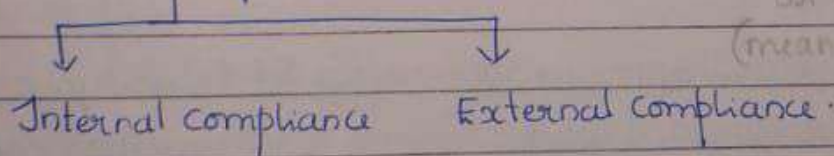 (mean
Internal compliance External compliance.